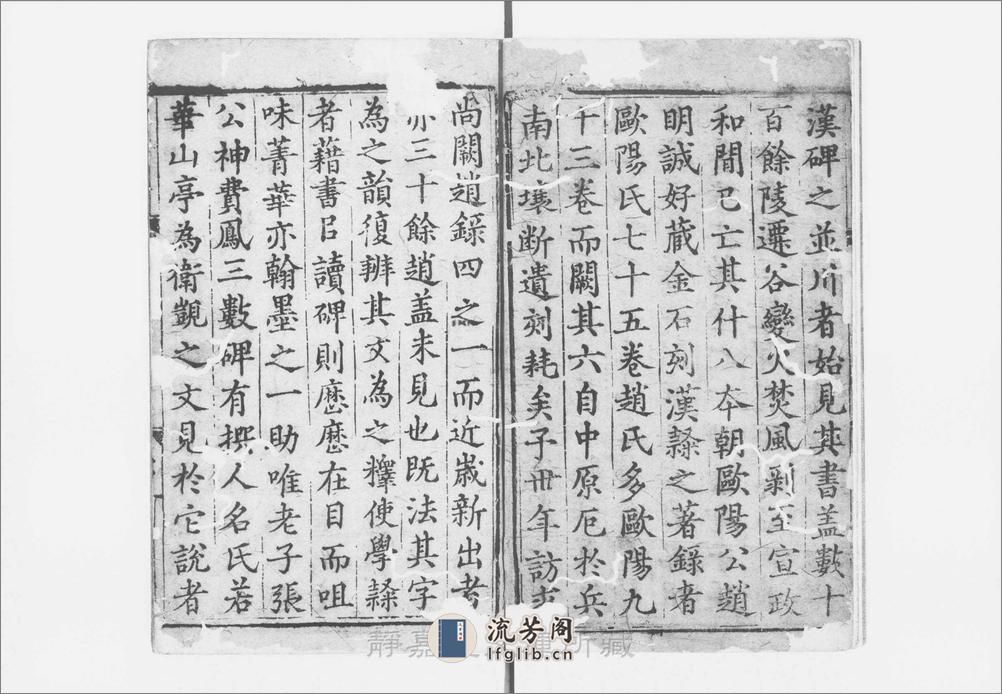 漢碑之並川者始見其書盖數十
百餘陵遷谷變火焚風剥至宣政
和閒已亡其什八夲朝歐陽公趙
明誠好蔵金石刻漢隸之著錄者
歐陽氏七十五卷趙氏多歐陽九
十三卷而闕其六自中原厄於兵
南北壤断遺刻耗矣予卅年訪求
尚闕趙錄四之一而近歳新出者
亦三十餘趙盖未見也既法其字
為之韻復辨其文為之釋使學隸
者藉書㠯讀碑則歷歷在目而咀
味菁華亦翰墨之一助唯老子張
公神費鳳三數碑有撰人名氏若
華山亭為衛覬之文見於它說者
静嘉 所藏
流芳阁
lfglib.cn